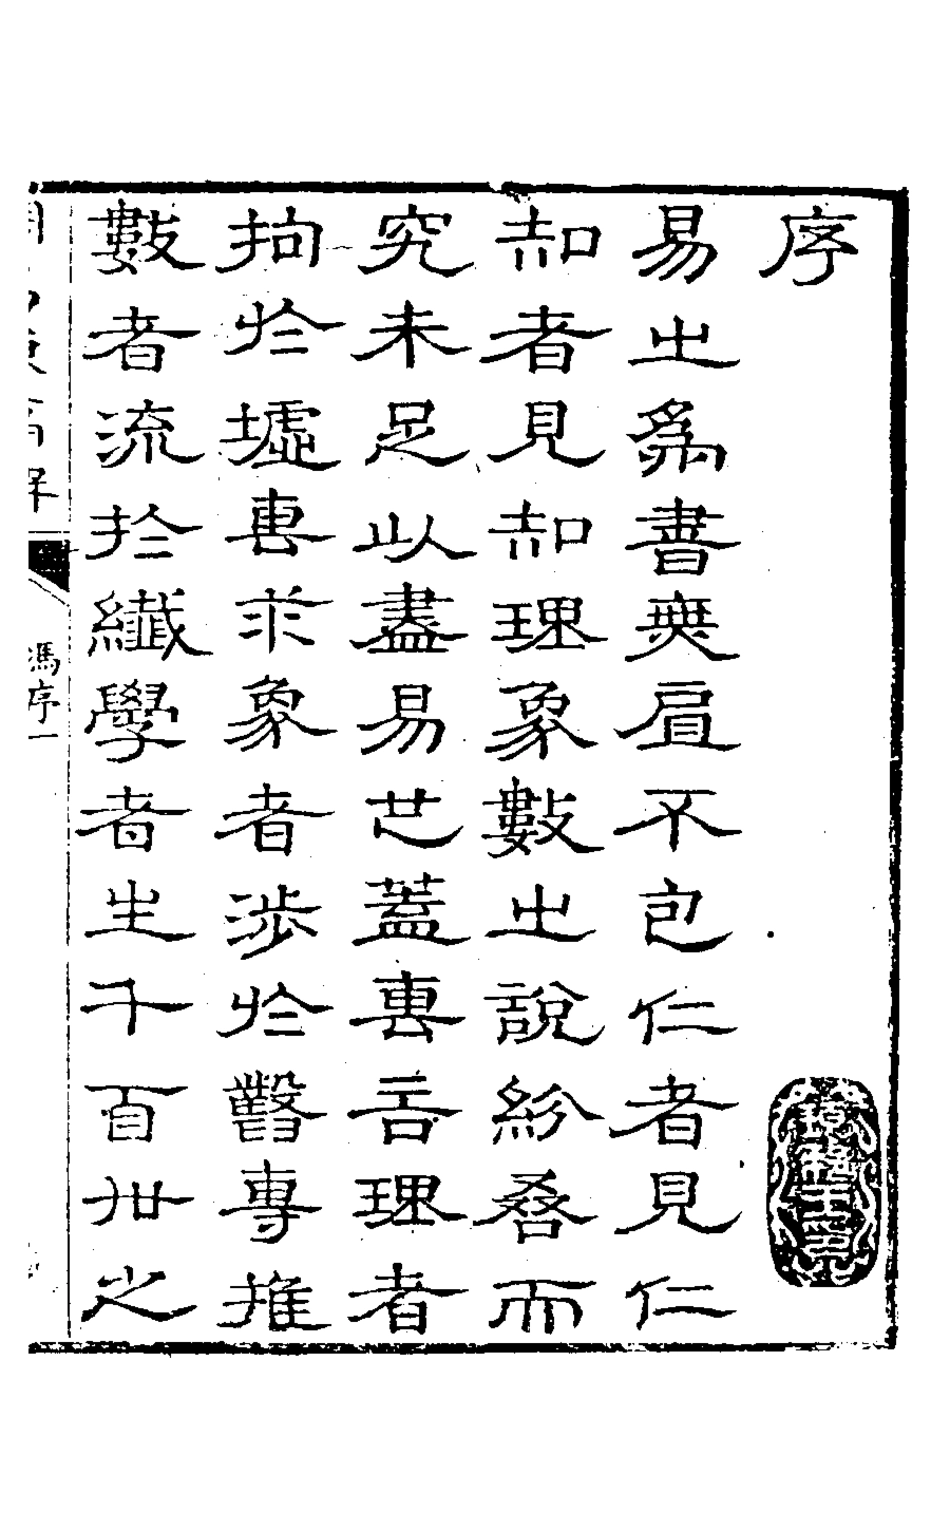 序
易之為書無不包仁者見仁
知者見知理象數之說紛而
究未足以盡易也蓋專言理者
拘於墟專求象者涉於鑿專推
數者流於纖學者生千百世之
馮序一